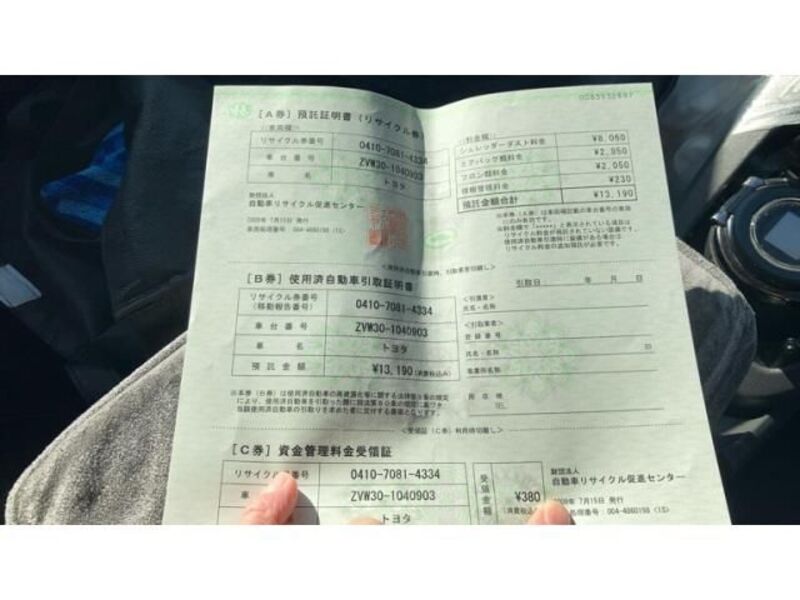 [A券] 預託証明書 (リサイクル券)
リサイクル券番号 0410-7081-4334
車台番号 ZVW30-1040903
トヨタ
財団法人
自動車リサイクル促進センター
2009年 7月15日 発行
車両処理番号 :004-4860198 (1S)
シュレッダーダスト料金 ¥8,060
エアバッグ類料金 ¥2,850
フロン類料金 ¥2,050
情報管理料金 ¥230
預託金額合計 ¥13,190
[B券] 使用済自動車引取証明書
リサイクル券番号
(移動報告番号) 0410-7081-4334
車台番号 ZVW30-1040903
トヨタ
預託金額 ¥13,190 (消費税込み)
引取日: 年 月 日
<引渡者>
氏名・名称
<引取業者>
登録番号
氏名・名称 印
事業所名称
所在地
TEL
<受領証 (C券) 利用時切離し>
[C券] 資金管理料金受領証
リサイクル 番号 0410-7081-4334
車 ZVW30-1040903
トヨタ
受領金額 ¥380
財団法人
自動車リサイクル促進センター
7月15日 発行
:004-4860198 (1S)